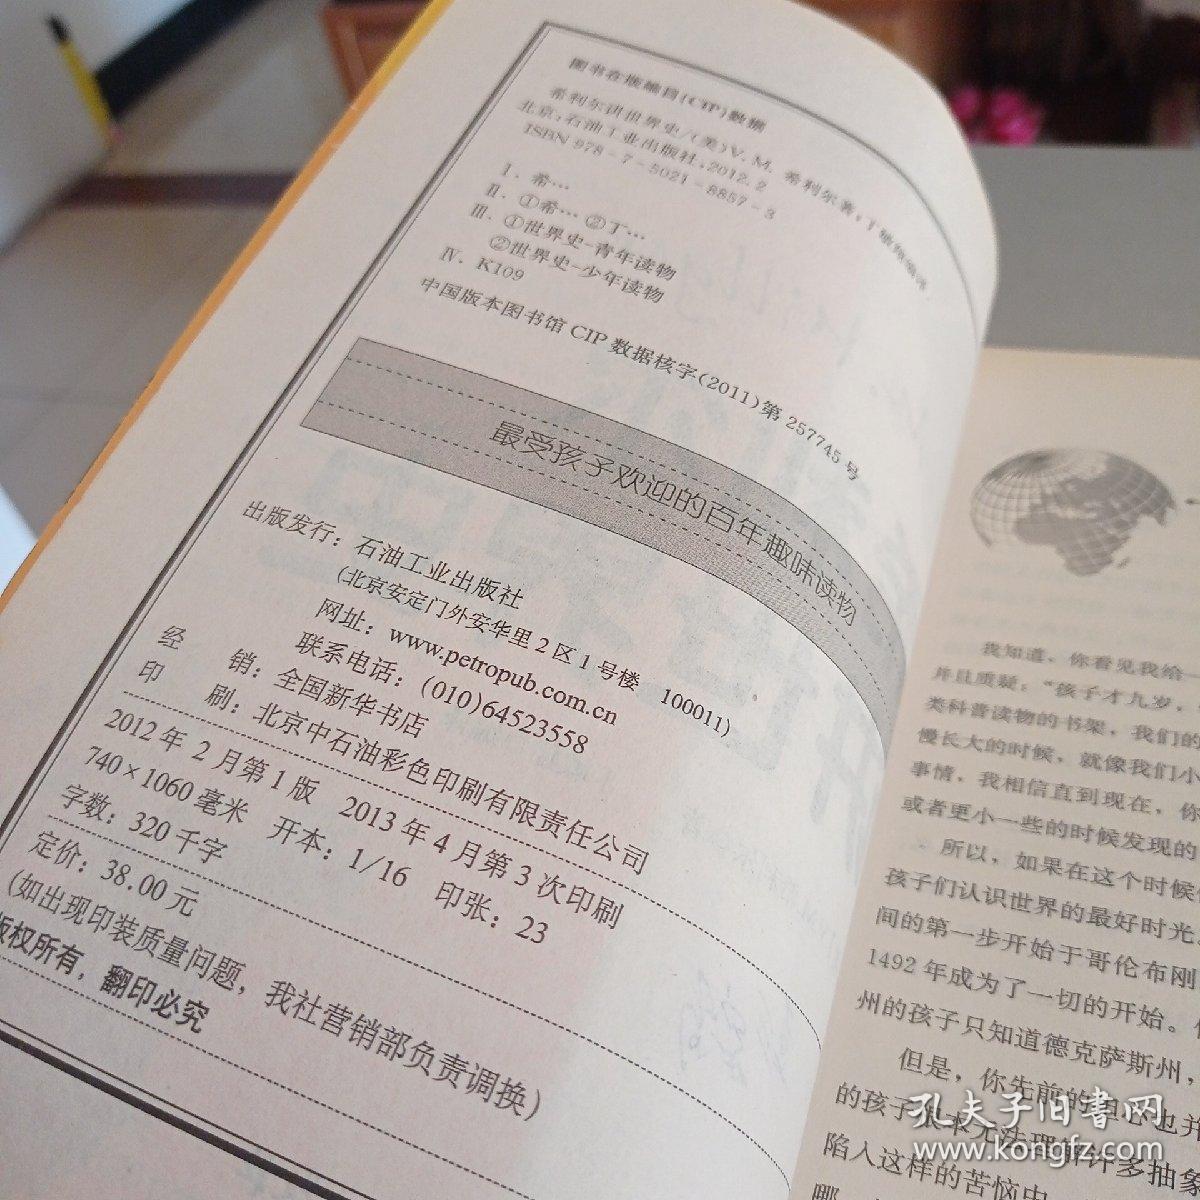 图书在版编目(CIP)数据
希利尔讲世界史/(美)V. M. 希利尔著;丁
北京:石油工业出版社,2012.2
ISBN 978-7-5021-8857-3
Ⅰ. 希…
Ⅱ. ①希… ②丁…
Ⅲ. ①世界史-青年读物
②世界史-少年读物
Ⅳ. K109
中国版本图书馆 CIP 数据核字(2011)第 257745 号
最受孩子欢迎的百年趣味读物
出版发行:石油工业出版社
(北京安定门外安华里 2 区 1 号楼 100011)
网址:www.petropub.com.cn
联系电话:(010)64523558
经 销:全国新华书店
印 刷:北京中石油彩色印刷有限责任公司
2012 年 2 月第 1 版 2013 年 4 月第 3 次印刷
740×1060 毫米 开本:1/16 印张:23
字数:320 千字
定价:38.00 元
(如出现印装质量问题,我社营销部负责调换)
版权所有,翻印必究
我知道,你看见我给一
并且质疑,“孩子才九岁,
类科普读物的书架,我们的
慢长大的时候,就像我们小
事情,我相信直到现在,你
或者更小一些的时候发现的
所以,如果在这个时候
孩子们认识世界的最好时光
间的第一步开始于哥伦布刚
1492 年成为了一切的开始。
州的孩子只知道德克萨斯州,
但是,你先前的担心也并
的孩子根本无法理解许多抽象
陷入这样的苦恼中
哪
孔夫子旧书网
www.kongfz.com